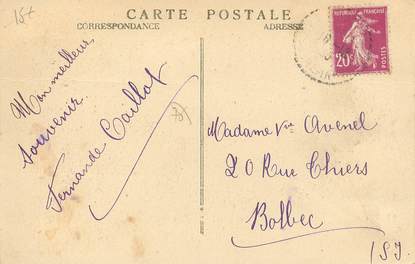 15+
CARTE POSTALE
CORRESPONDANCE
ADRESSE
REPUBLIQUE FRANÇAISE
20c
POSTES
Mon meilleur
souvenir.
Fernande Caillot
Madame Vve Avenel
20 Rue Thiers
Bolbec
(S.I.)